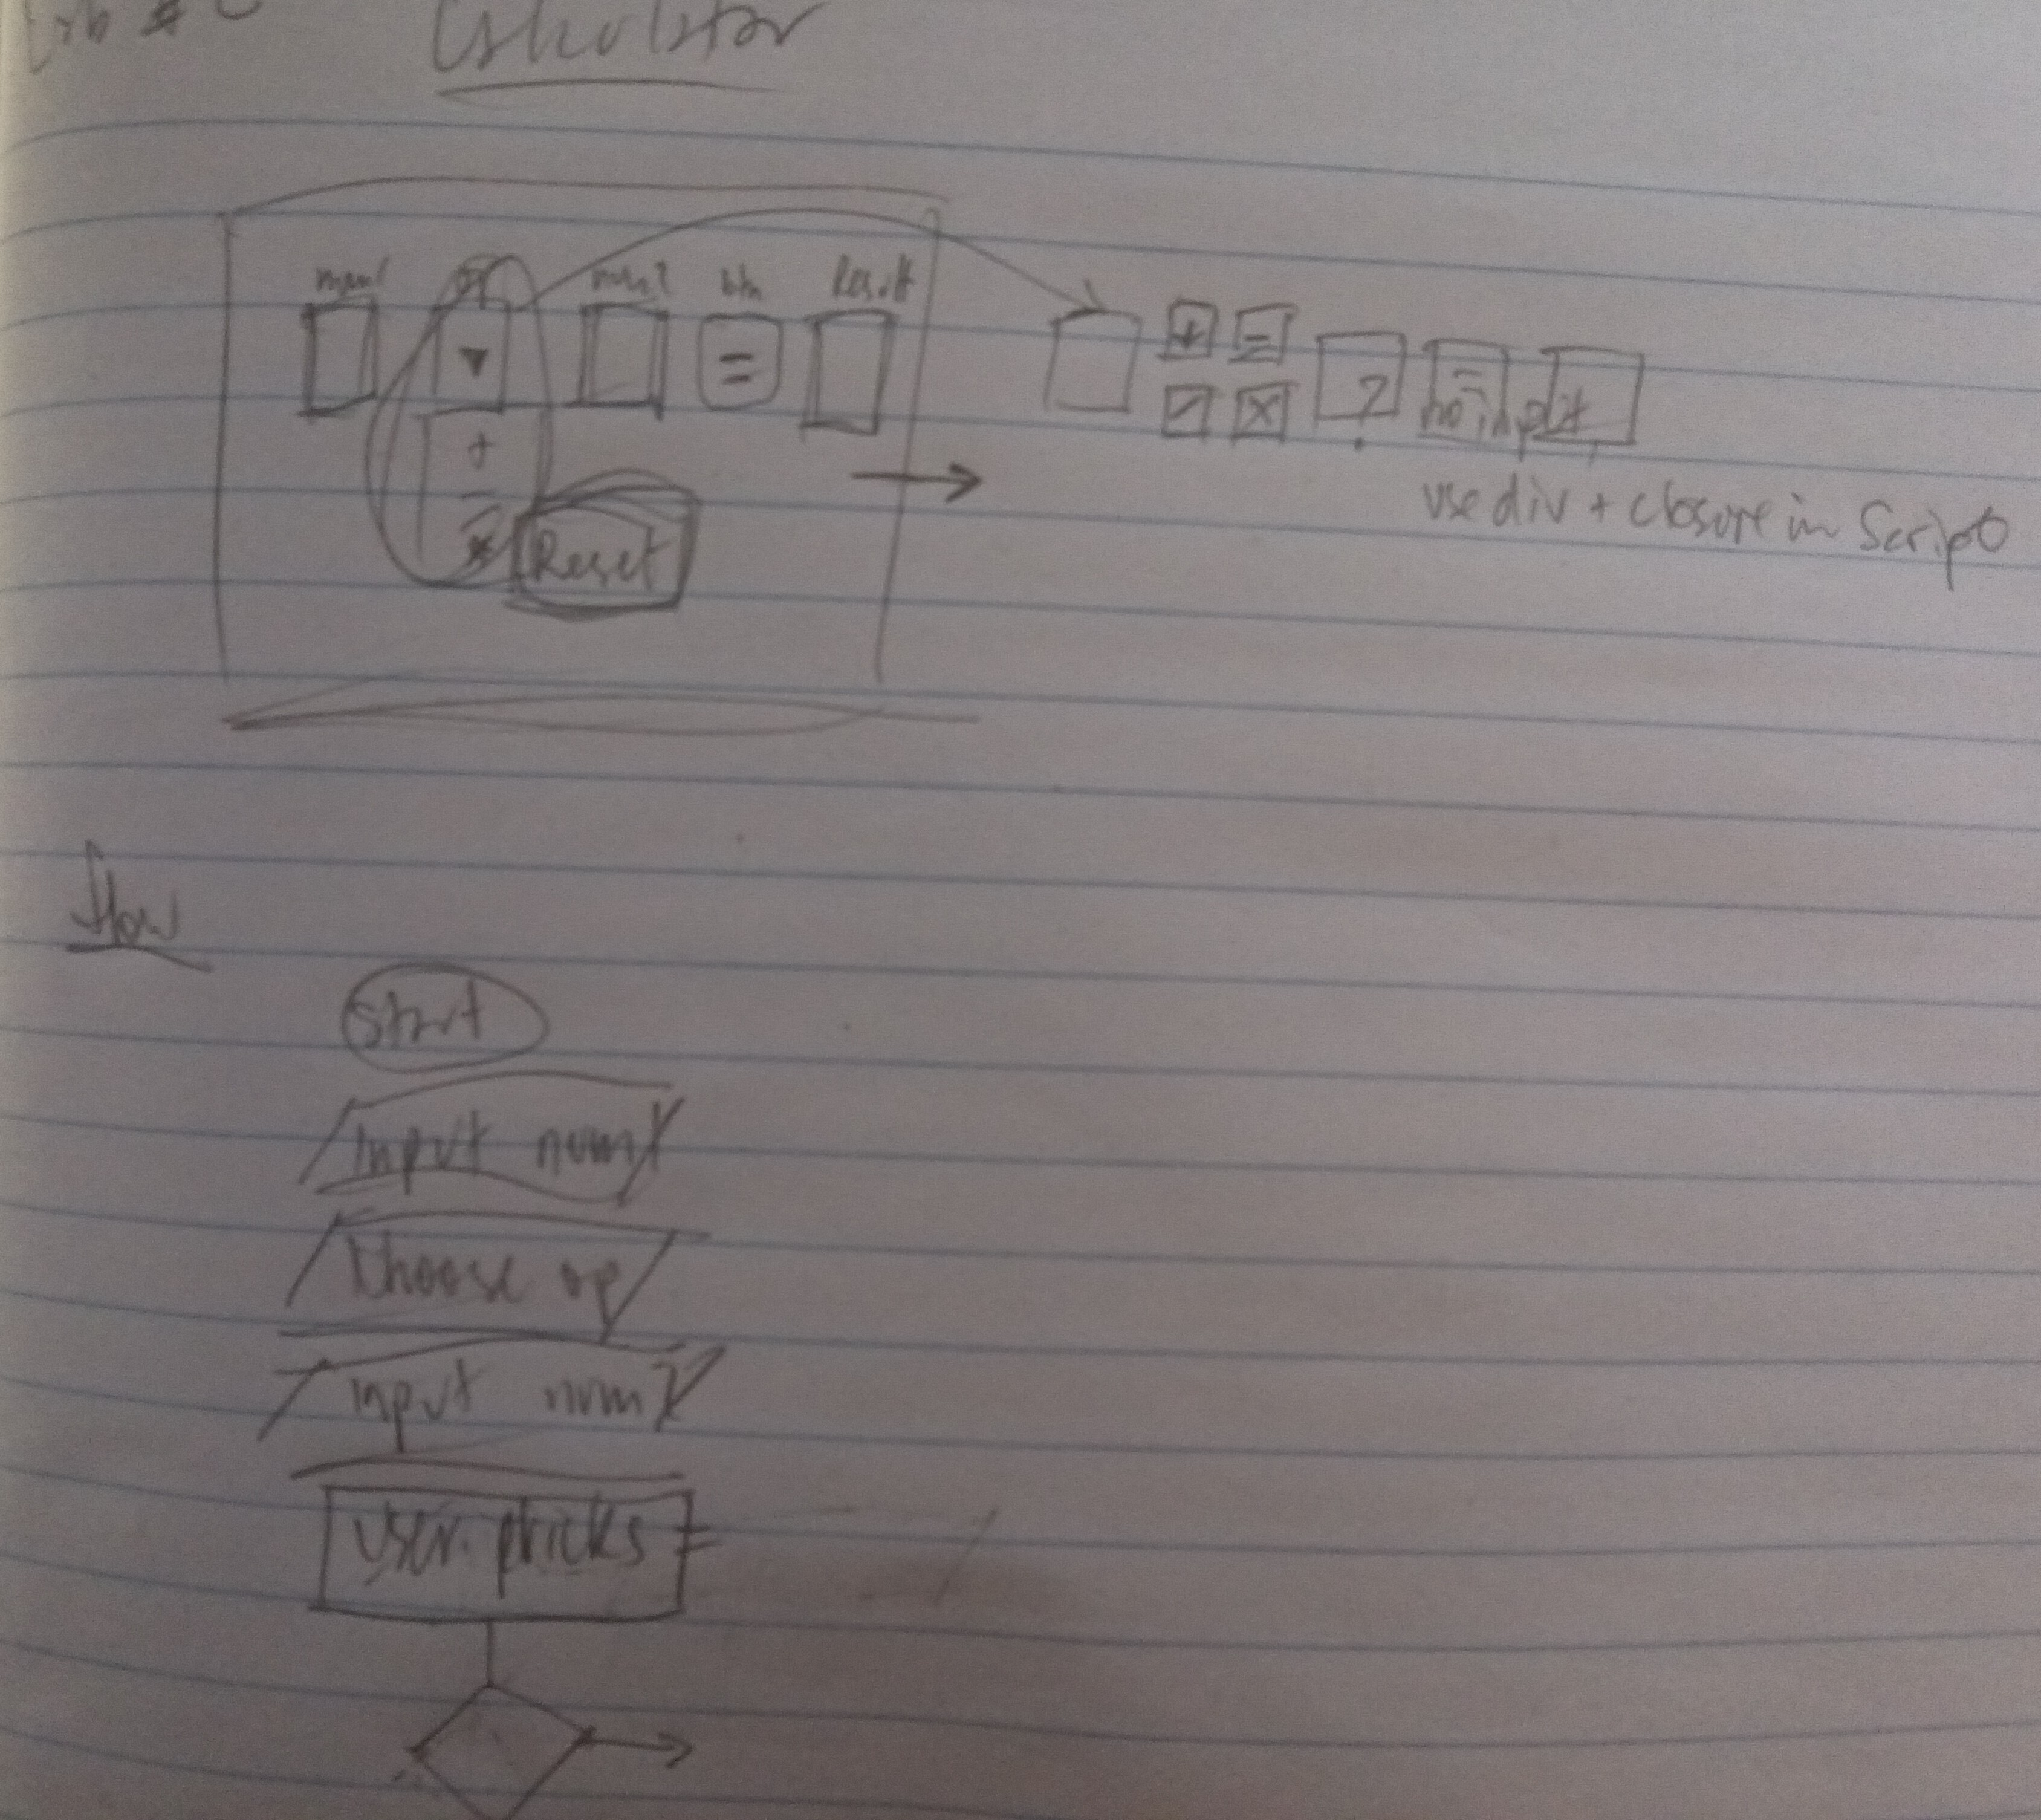 Calculator
num1 op num2 btn Result
▼ =
+ - ÷ ?
+
-
no input
Reset
use div + closure in Script
flow
Start
Input num1
Choose op
Input num2
User clicks =